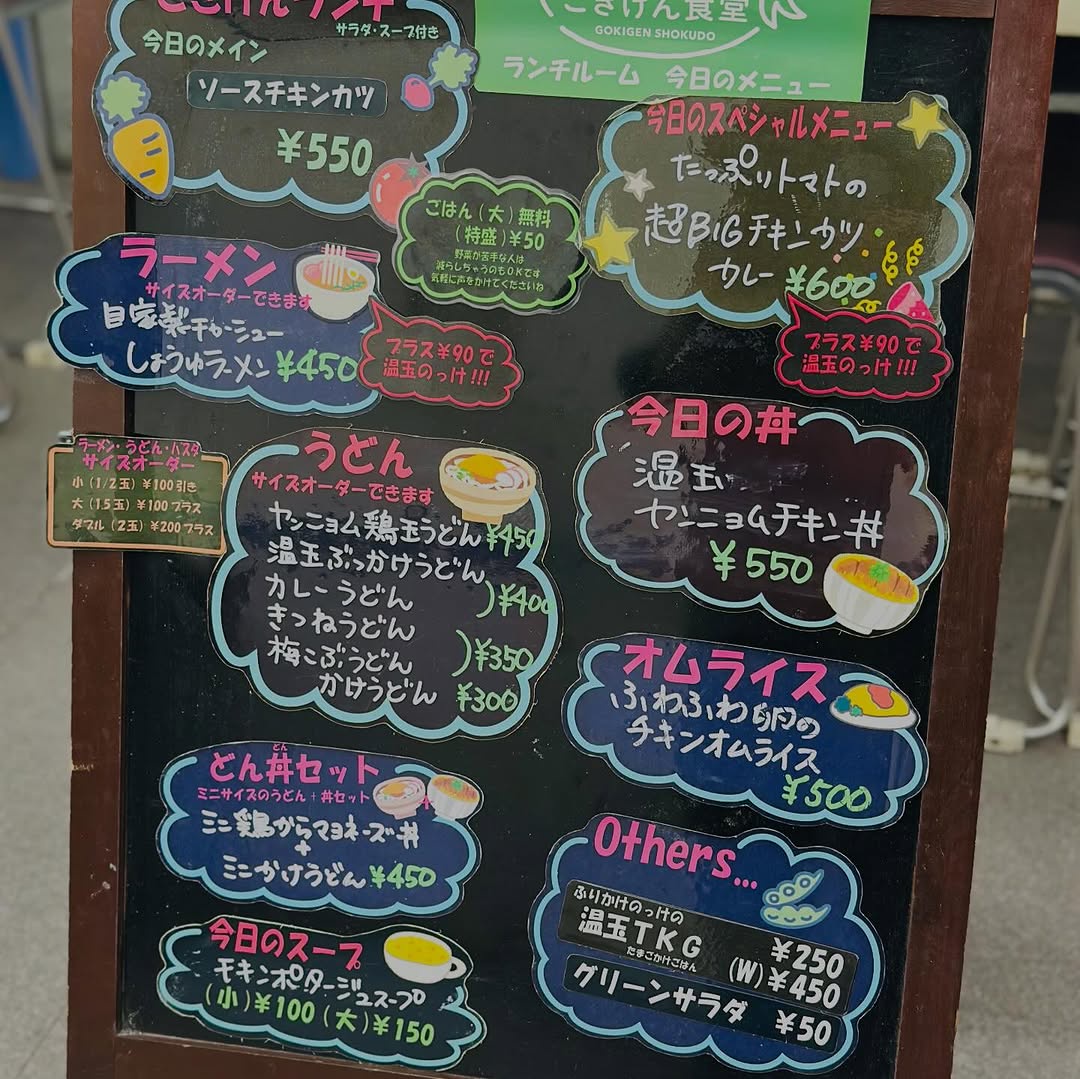 ごきげんランチ
サラダ・スープ付き
今日のメイン
ソースチキンカツ
¥550
ごきげん食堂
GOKIGEN SHOKUDO
ランチルーム 今日のメニュー
今日のスペシャルメニュー
たっぷりトマトの
超BIGチキンカツ
カレー ¥600
プラス¥90で
温玉のっけ!!!
ごはん(大)無料
(特盛)¥50
野菜が苦手な人は
減らしちゃうのもOKです
気軽に声をかけてくださいね
ラーメン
サイズオーダーできます
自家製チャーシュー
しょうゆラーメン ¥450
プラス¥90で
温玉のっけ!!!
ラーメン・うどん・パスタ
サイズオーダー
小(1/2玉)¥100引き
大(1.5玉)¥100プラス
ダブル(2玉)¥200プラス
うどん
サイズオーダーできます
ヤンニョム鶏玉うどん ¥450
温玉ぶっかけうどん
カレーうどん )¥400
きつねうどん
梅こぶうどん )¥350
かけうどん ¥300
今日の丼
温玉
ヤンニョムチキン丼
¥550
オムライス
ふわふわ卵の
チキンオムライス
¥500
どん丼セット
どん
ミニサイズのうどん+丼セット
ミニ鶏からマヨネーズ丼
+
ミニかけうどん ¥450
今日のスープ
モキンポタージュスープ
(小)¥100(大)¥150
Others...
ふりかけのっけの
温玉TKG ¥250
たまごかけごはん
(W)¥450
グリーンサラダ ¥50